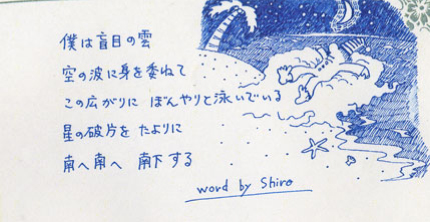 僕は盲目の雲
空の波に身を委ねて
この広がりに ぼんやりと泳いでいる
星の破片を たよりに
南へ南へ 南下する
word by Shiro